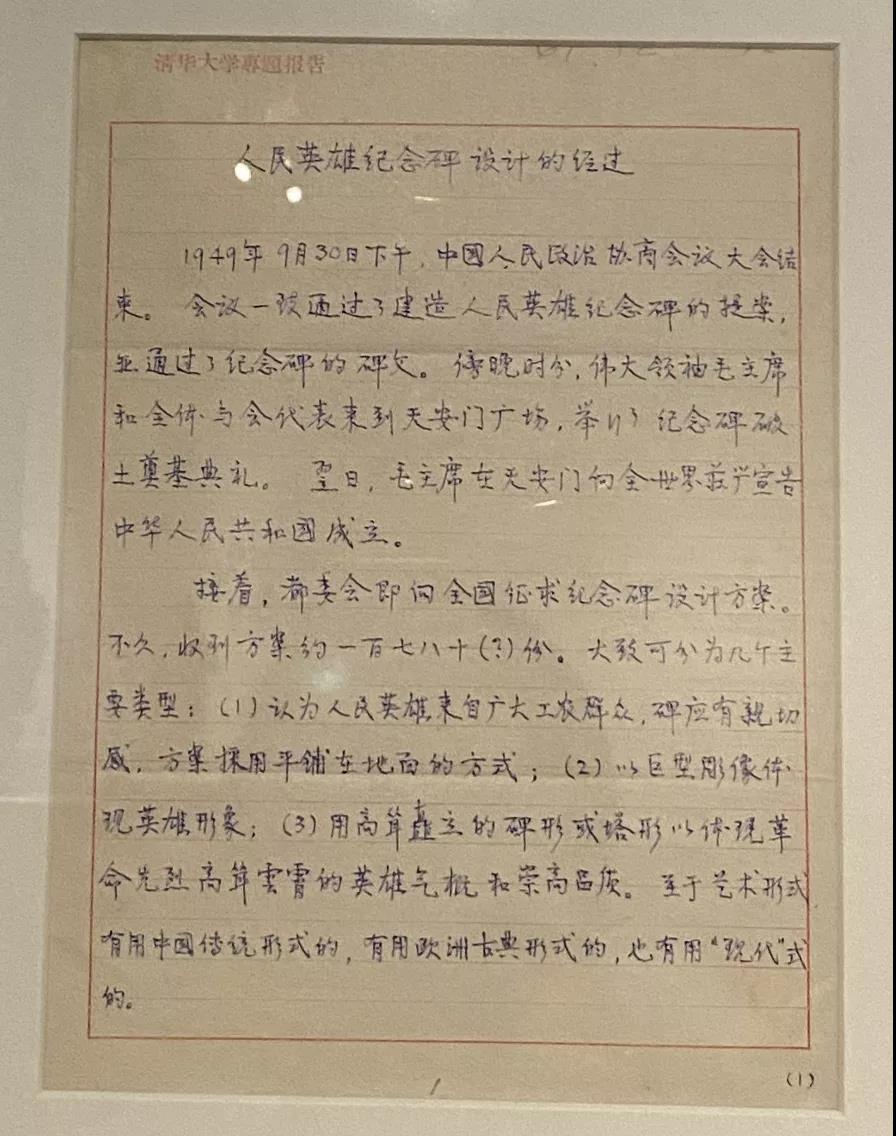 清华大学專題报告
人民英雄纪念碑设计的经过
1949年9月30日下午，中國人民政治协商会议大会结
束。会议一致通过了建造人民英雄纪念碑的提案，
並通过了纪念碑的碑文。傍晚时分，伟大领袖毛主席
和全体与会代表来到天安门广场，举行了纪念碑破
土奠基典礼。翌日，毛主席在天安门向全世界莊严宣告
中华人民共和國成立。
接着，都委会即向全国征求纪念碑设计方案。
不久，收到方案约一百七八十(?)份。大致可分为几个主
要类型：(1)认为人民英雄来自广大工农群众，碑应有親切
感，方案採用平铺在地面的方式；(2)以巨型彫像体
现英雄形象；(3)用高耸矗立的碑形或塔形以体现革
命先烈高耸雲霄的英雄气概和崇高品质。至于艺术形式
有用中國传统形式的，有用欧洲古典形式的，也有用“现代”式
的。
1
(1)